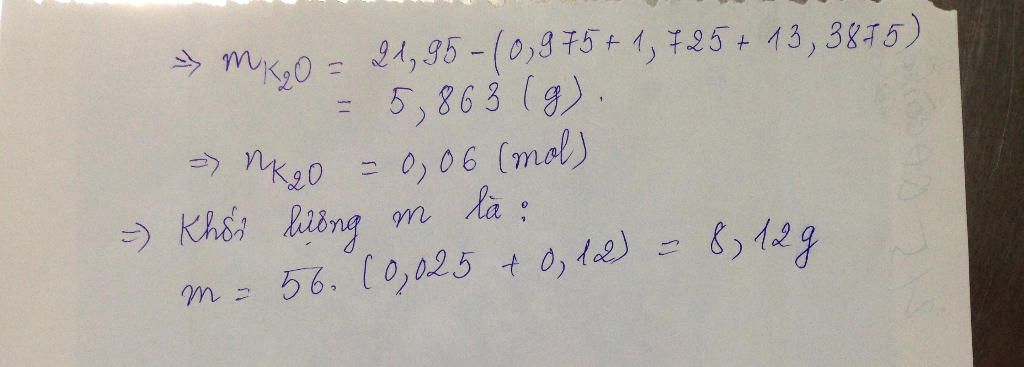 ⇒ mK₂O = 21,95 - (0,975 + 1,725 + 13,3875)
= 5,863 (g).
⇒ nK₂O = 0,06 (mol)
⇒ Khối lượng m là :
m = 56. (0,025 + 0,12) = 8,12g